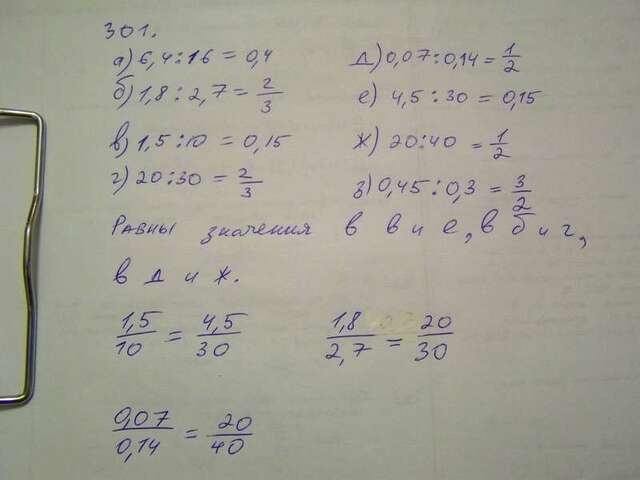 301.
а) 6,4:16 = 0,4 д) 0,07:0,14 = 1/2
б) 1,8:2,7 = 2/3 е) 4,5:30 = 0,15
в) 1,5:10 = 0,15 ж) 20:40 = 1/2
г) 20:30 = 2/3 з) 0,45:0,3 = 3/2
Равны значения в в и е, в б и г,
в д и ж.
1,5/10 = 4,5/30 1,8/2,7 = 20/30
0,07/0,14 = 20/40